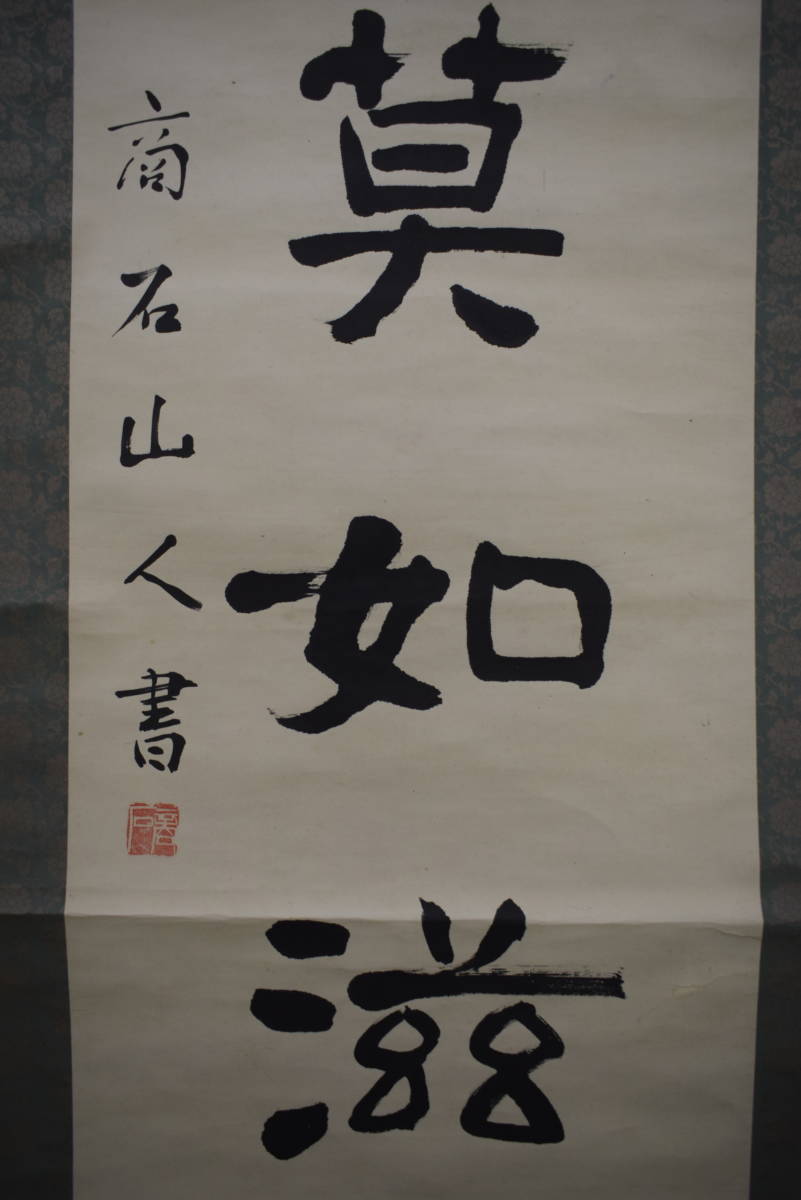 莫如滋
商石山人書